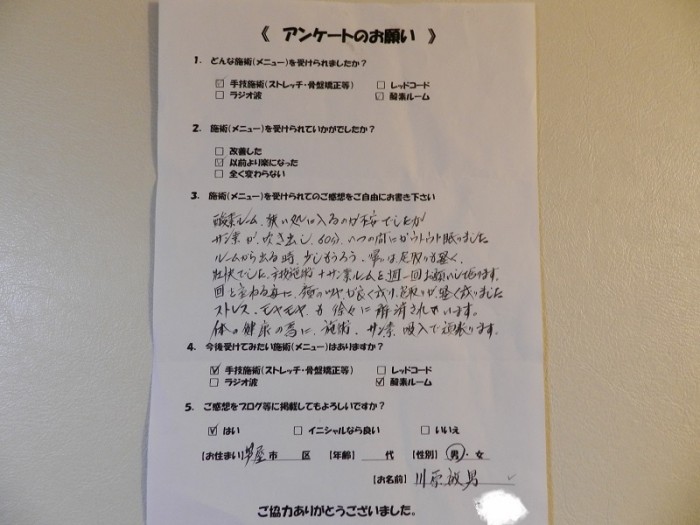 《 アンケートのお願い 》
1. どんな施術(メニュー)を受けられましたか?
☑ 手技施術(ストレッチ・骨盤矯正等) □ レッドコード
□ ラジオ波 ☑ 酸素ルーム
2. 施術(メニュー)を受けられていかがでしたか?
□ 改善した
☑ 以前より楽になった
□ 全く変わらない
3. 施術(メニュー)を受けられてのご感想をご自由にお書き下さい
酸素ルーム、狭い処に入るのが不安でしたが
サン素が、吹き出し、60分、いつの間にかウトウト眠りました
ルームから出る時、少しもうろう、帰りは足取りも軽く、
壮快でした。手技施術+サン素ルームを週一回お願いし続けます。
回を重ねる毎に、顔の が良く成り、足取りが軽く成りました
ストレス、モヤモヤ、も徐々に解消されています。
体の健康の為に、施術、サン素、吸入で頑張ります。
4. 今後受けてみたい施術(メニュー)はありますか?
☑ 手技施術(ストレッチ・骨盤矯正等) □ レッドコード
□ ラジオ波 ☑ 酸素ルーム
5. ご感想をブログ等に掲載してもよろしいですか?
☑ はい □ イニシャルなら良い □ いいえ
【お住まい】芦屋市 区 【年齢】 代 【性別】 男・女
【お名前】 川原 男
ご協力ありがとうございました。